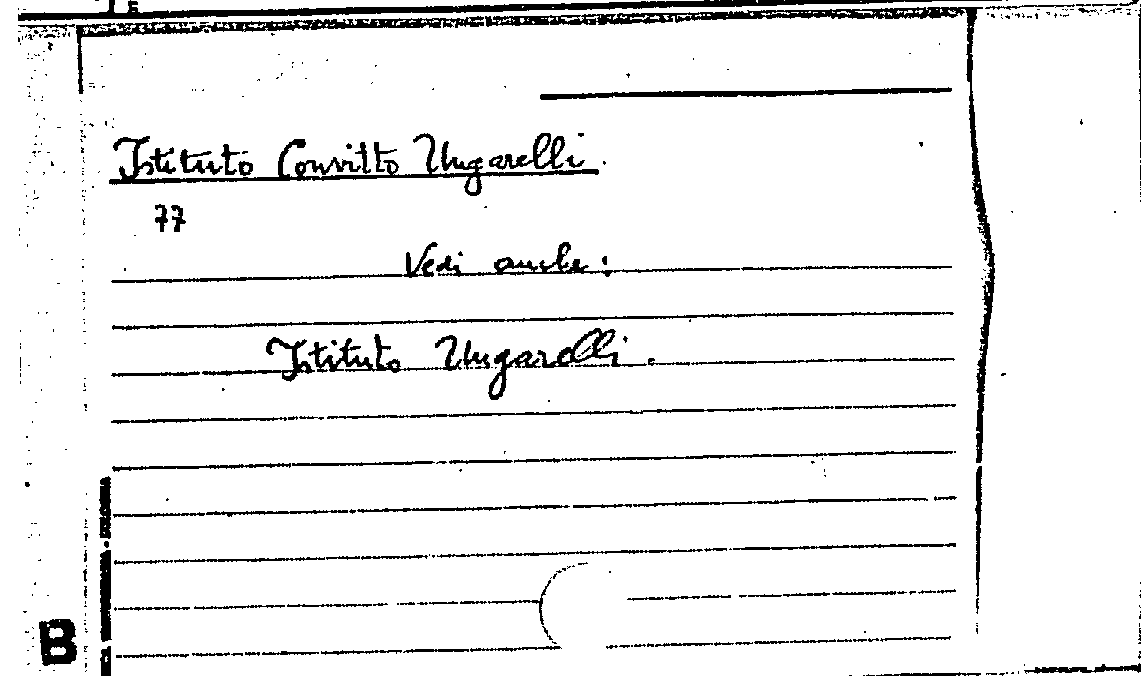 Istituto Convitto Ungarelli.
77
Vedi anche:
Istituto Ungarelli.
B